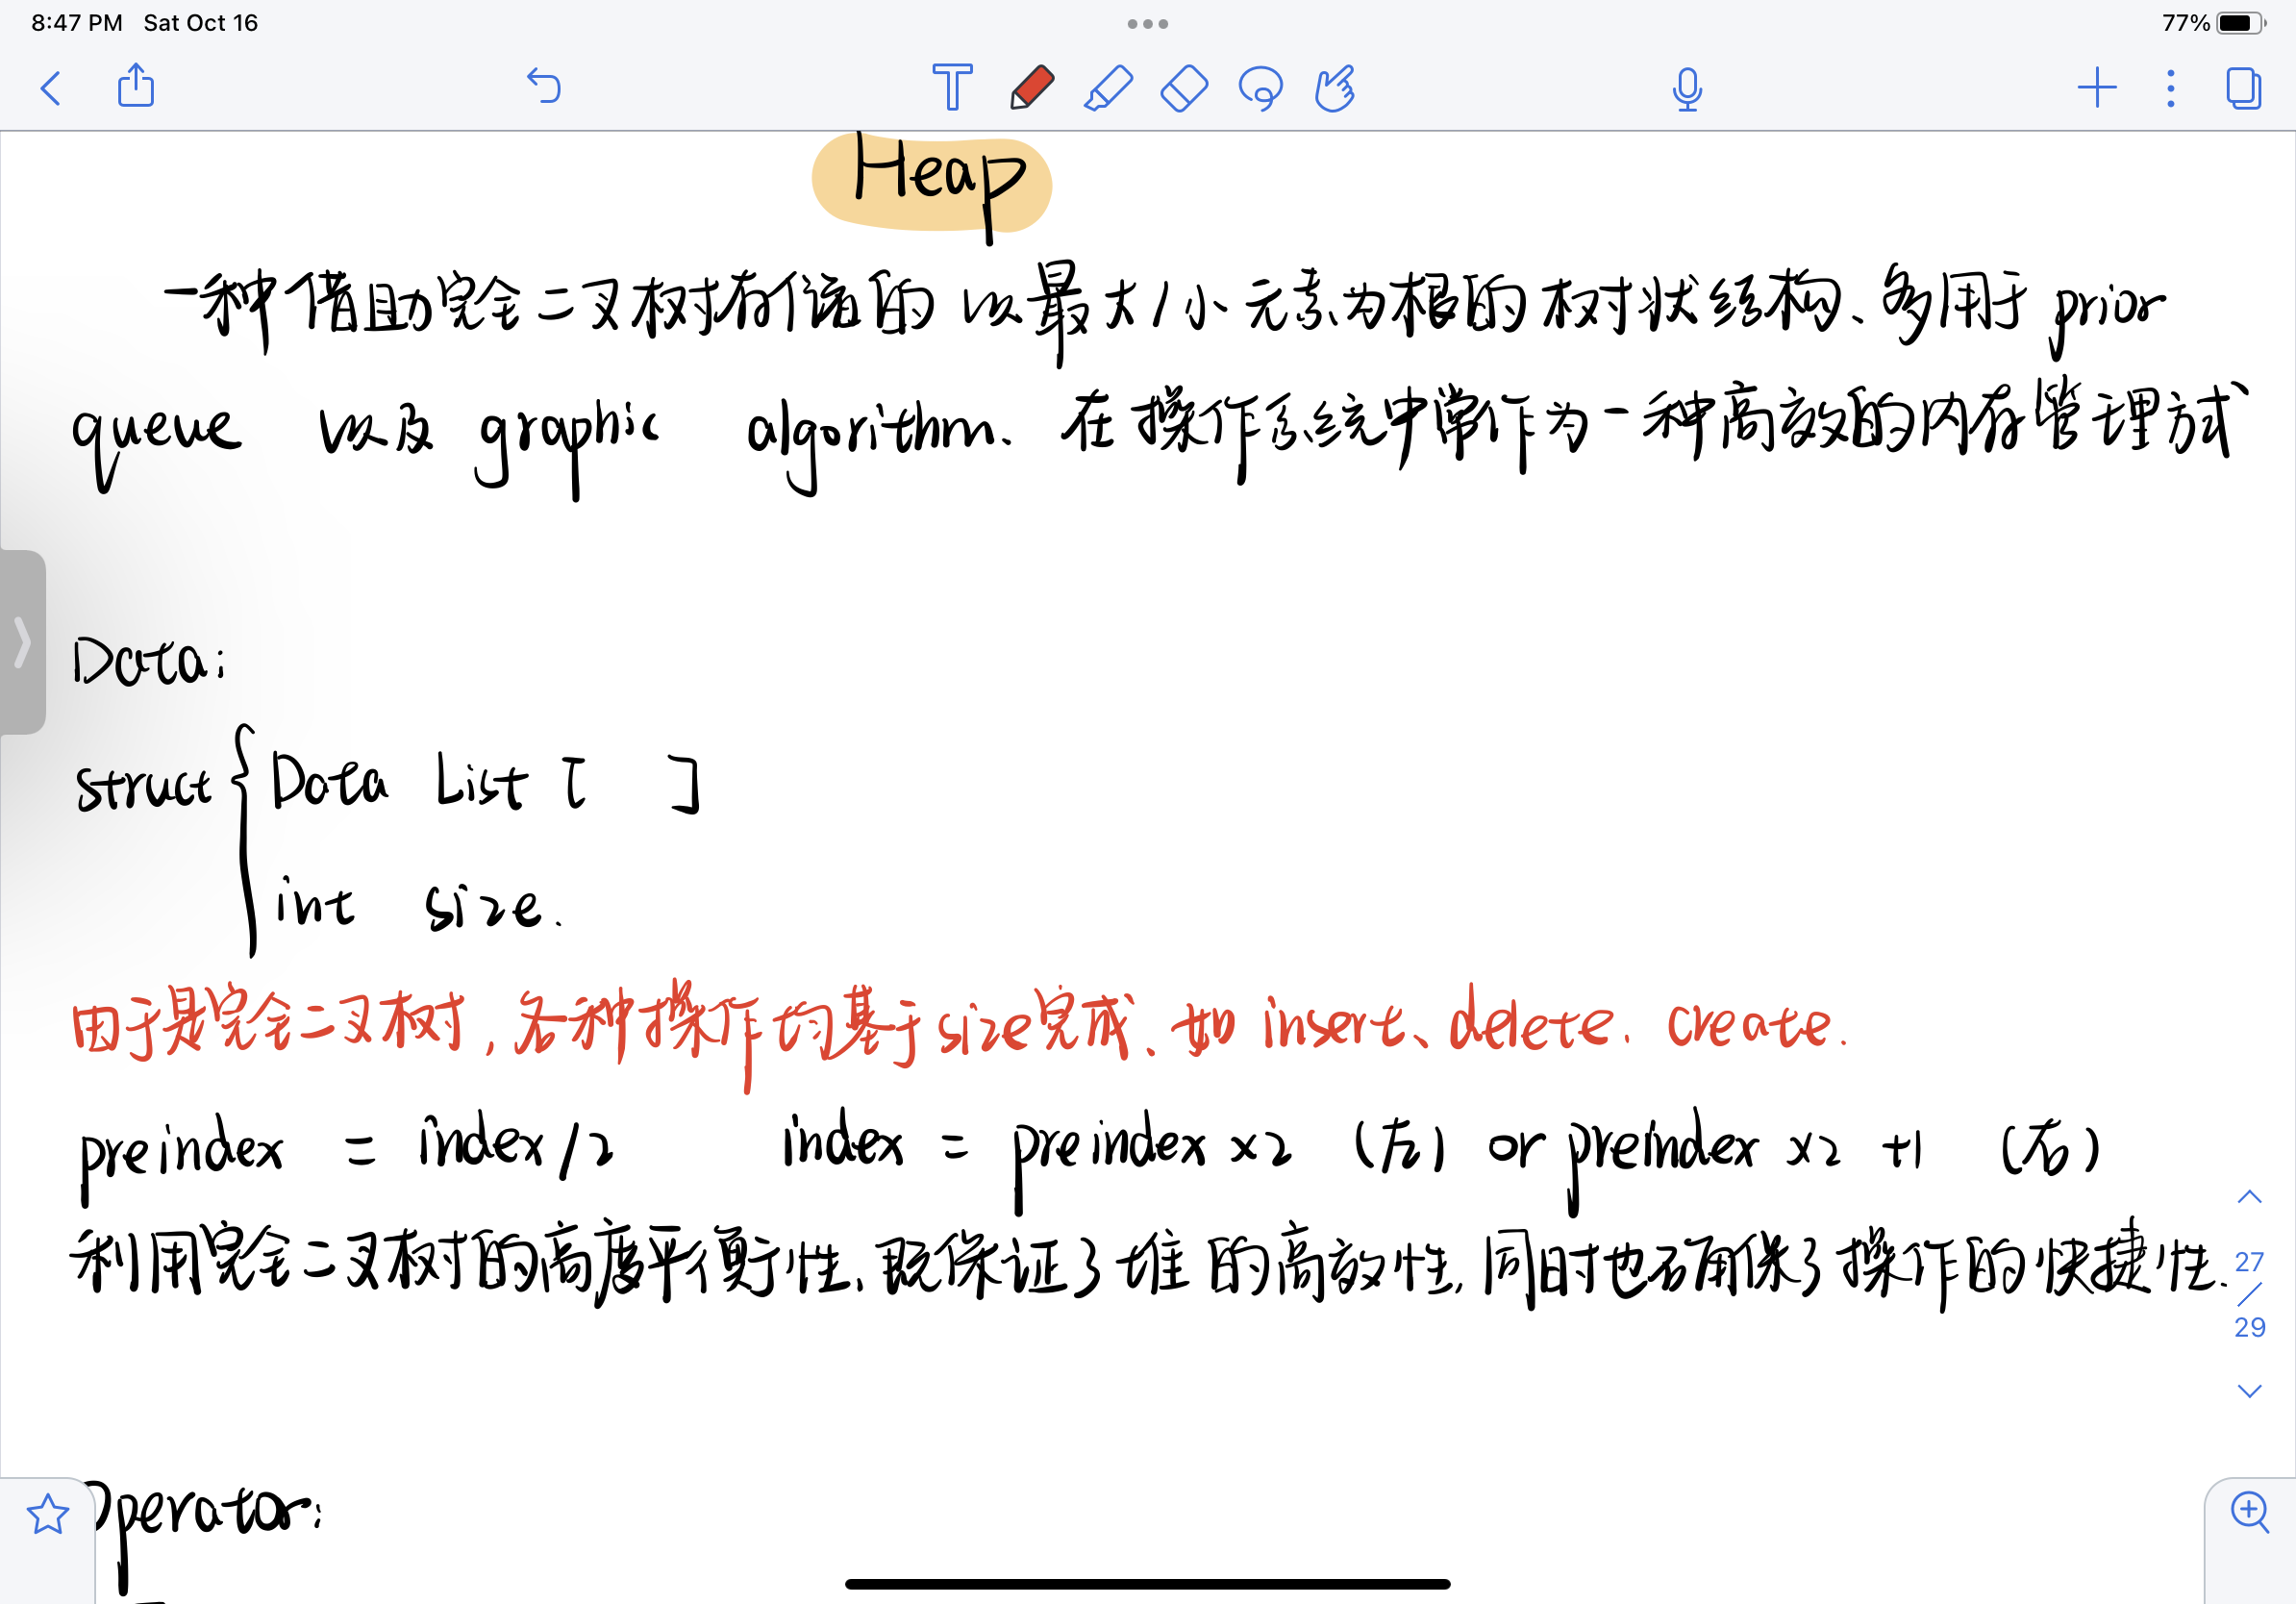 8:47 PM Sat Oct 16
77%
Heap
一种借助完全二叉树存储的 以最大/小元素为根的树状结构、多用于 prior
queue 以及 graphic algorithm、在操作系统中常作为一种高效的内存管理方式
Data:
struct { Data List [ ]
int size.
由于是完全二叉树, 各种操作均基于size完成、如 insert、delete. create.
preindex = index/2 index = preindex x2 (左) or preindex x2 +1 (右)
利用完全二叉树的高度平衡性, 既保证了堆的高效性, 同时也确保了操作的快捷性.
27
/
29
Operator: